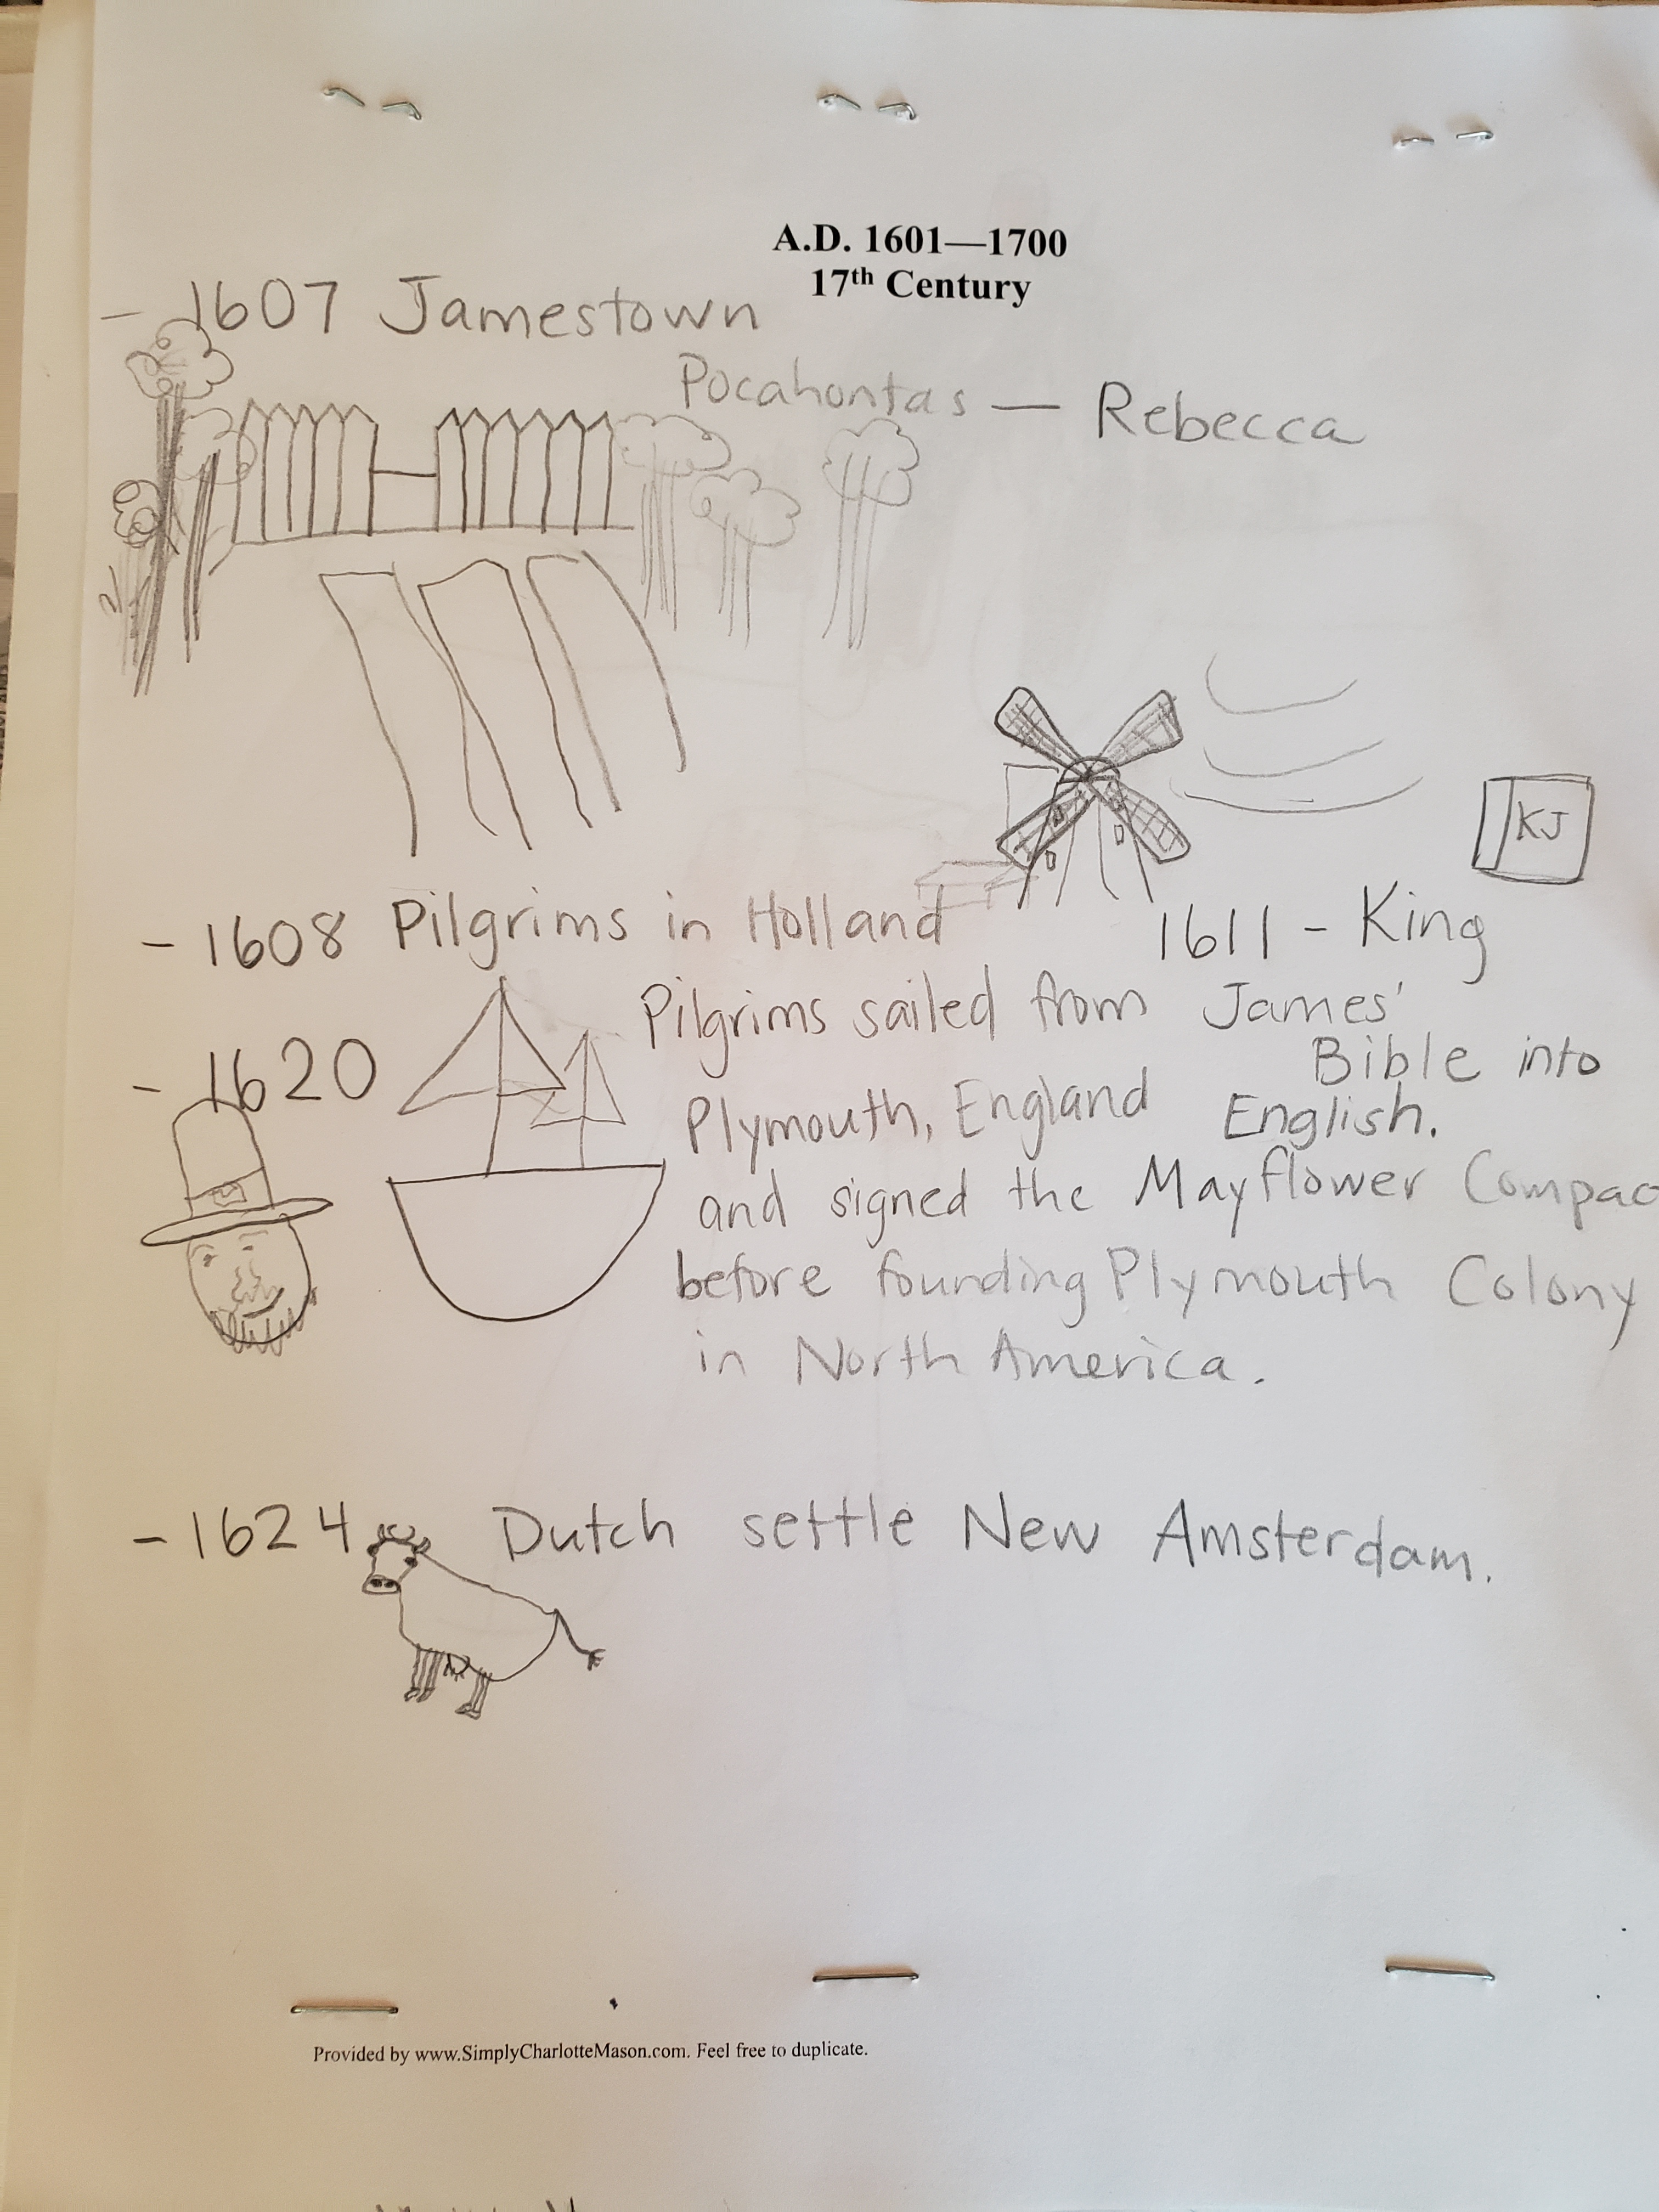 A.D. 1601—1700
17th Century
- 1607 Jamestown
Pocahontas — Rebecca
KJ
- 1608 Pilgrims in Holland
1611 - King
James'
Bible into
English.
- 1620
Pilgrims sailed from
Plymouth, England
and signed the Mayflower Compac
before founding Plymouth Colony
in North America.
- 1624 Dutch settle New Amsterdam.
Provided by www.SimplyCharlotteMason.com. Feel free to duplicate.